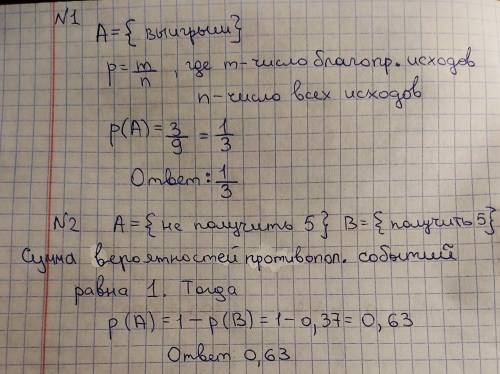 N1
A={выигрыш}
p=m/n, где m-число благопр. исходов
n-число всех исходов
p(A)=3/9=1/3
Ответ: 1/3
N2 A={не получить 5} B={получить 5}
Сумма вероятностей противопол. событий
равна 1. Тогда
p(A)=1-p(B)=1-0,37=0,63
Ответ 0,63